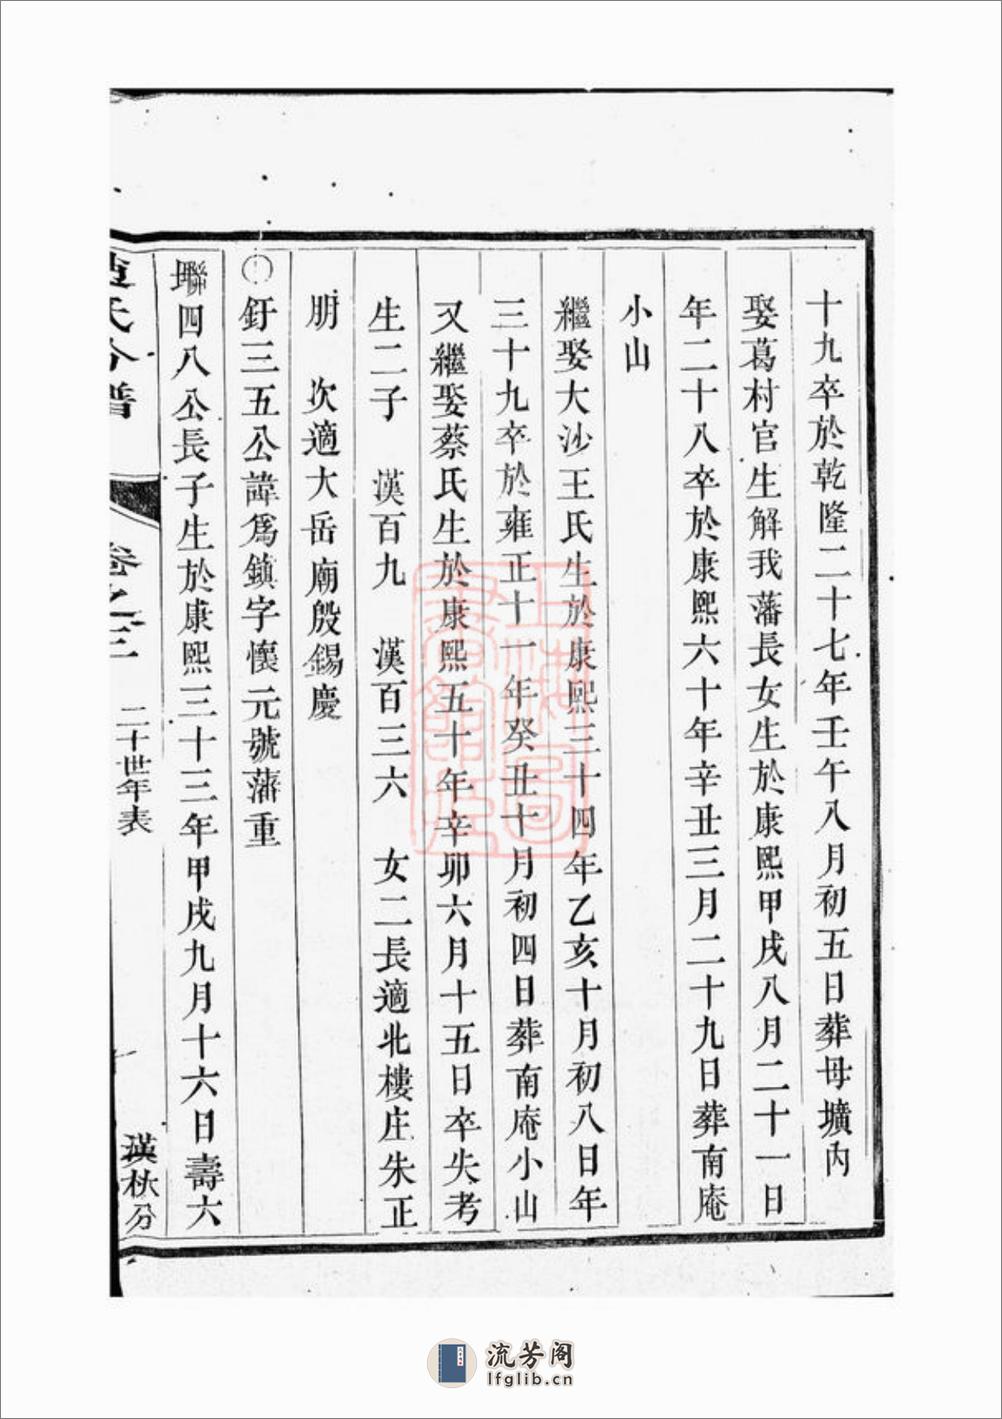 十九卒於乾隆二十七年壬午八月初五日葬母壙內
娶葛村官生解我藩長女生於康熙甲戌八月二十一日
年二十八卒於康熙六十年辛丑三月二十九日葬南庵
小山
繼娶大沙王氏生於康熙三十四年乙亥十月初八日年
三十九卒於雍正十一年癸丑十月初四日葬南庵小山
又繼娶蔡氏生於康熙五十年辛卯六月十五日卒失考
生二子 漢百九 漢百三六 女二長適北樓庄朱正
朋 次適大岳廟殷錫慶
〇釪三五公諱為鎮字懷元號藩重
聯四八公長子生於康熙三十三年甲戌九月十六日壽六
氏分譜 卷之三 二十世年表 瑛秋分
上海圖書館藏
流芳阁
lfglib.cn